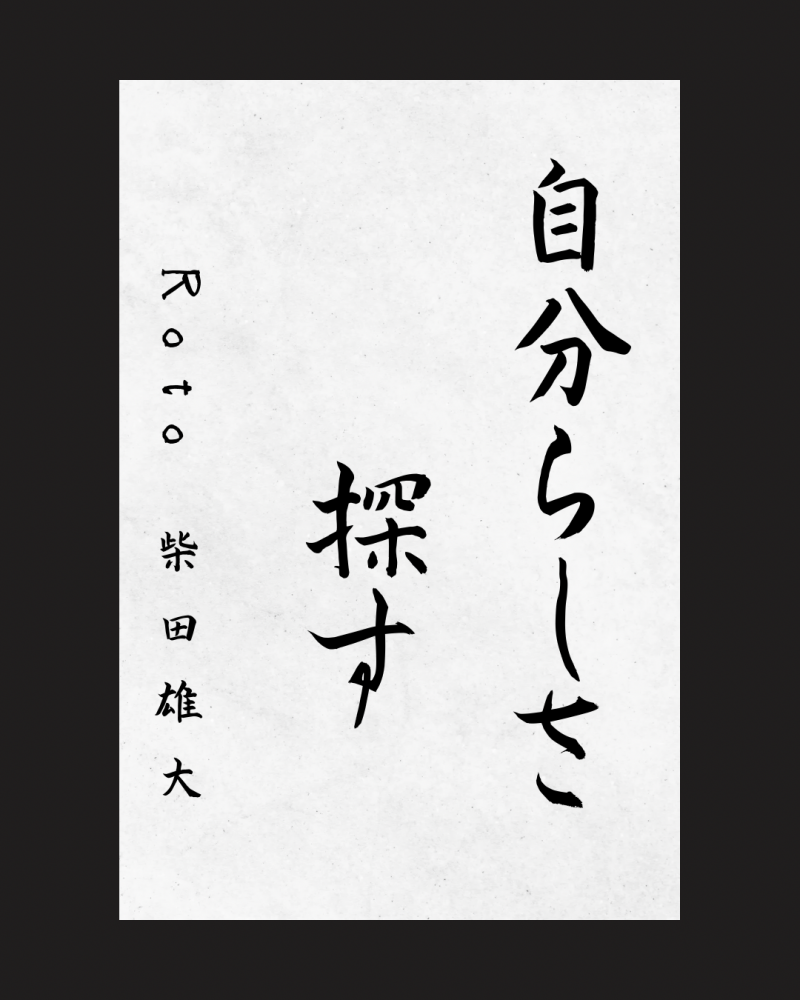 自分らしさ
探す
Roto 柴田雄大